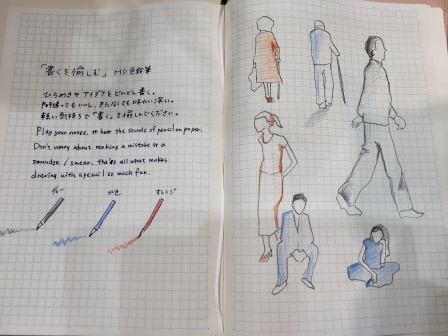 「書くを愉しむ」 MD色鉛筆
ひらめきやアイデアをどんどん書く。
間違ってもいいし、きたなくても味わい深い。
軽い気持ちで「書く」を愉しんでください。
Play your notes, to hear the sounds of pencil on paper.
Don't worry about making a mistake or a
smudge / smear, that's all what makes
drawing with a pencil so much fun.
グレー 水色 オレンジ